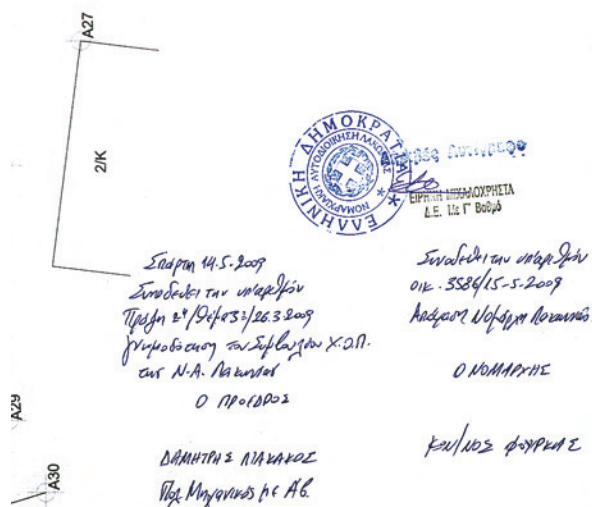 A27
2/K
ΕΛΛΗΝΙΚΗ ΔΗΜΟΚΡΑΤΙΑ
ΝΟΜΑΡΧΙΑΚΗ ΑΥΤΟΔΙΟΙΚΗΣΗ ΛΑΚΩΝΙΑΣ
ΕΙΡΗΝΗ ΜΙΧΑΛΟΧΡΗΣΤΑ
Δ.Ε. με Γ' Βαθμό
Σπάρτη 14.5.2009
Συνοδεύει την υπ'αριθμόν
Πράξη 2η/Θέμα 3ο/26.3.2009
γνωμοδότηση του Συμβουλίου Χ.Ο.Π.
της Ν.Α. Λακωνίας
Ο ΠΡΟΕΔΡΟΣ
ΔΗΜΗΤΡΗΣ ΛΙΑΚΑΚΟΣ
Πολ. Μηχανικός με Α'β.
Συνοδεύει την υπ'αριθμόν
οικ. 3586/15-5-2009
Απόφαση Νομάρχη Λακωνίας
Ο ΝΟΜΑΡΧΗΣ
ΚΩΝ/ΝΟΣ ΦΟΥΡΚΑΣ
A29
A30